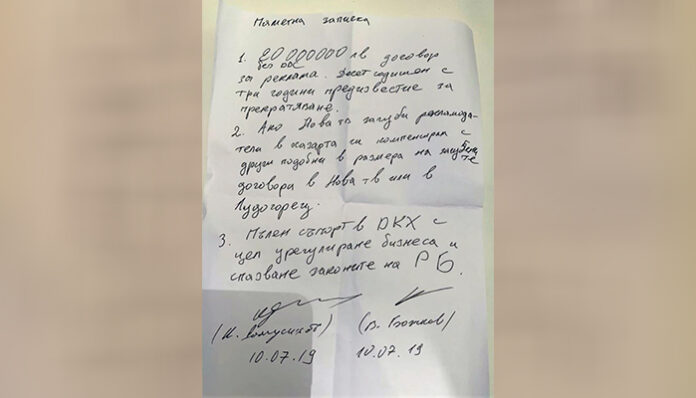 Паметна записка
1. 20 000000 лв договор
без ДДС
за реклама. Десетгодишен с
три години предизвестие за
прекратяване.
2. Ако Нова тв загуби рекламода-
тели в хазарта ги компенсирам с
други подобни в размера на загубените
договора в Нова тв или в
Лудогорец.
3. Пълен съпорт в ДКХ с
цел урегулиране бизнеса и
спазване законите на РБ.
(К. Домусчиев) (В. Божков)
10.07.19 10.07.19